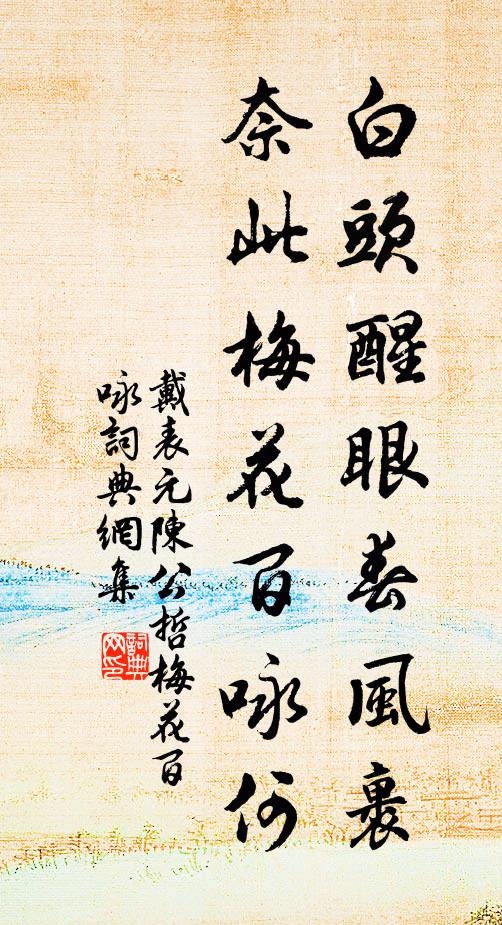 白頭醒眼春風裏
奈此梅花百咏何
戴表元陳公哲梅花百
咏詞典網集
詞典網印